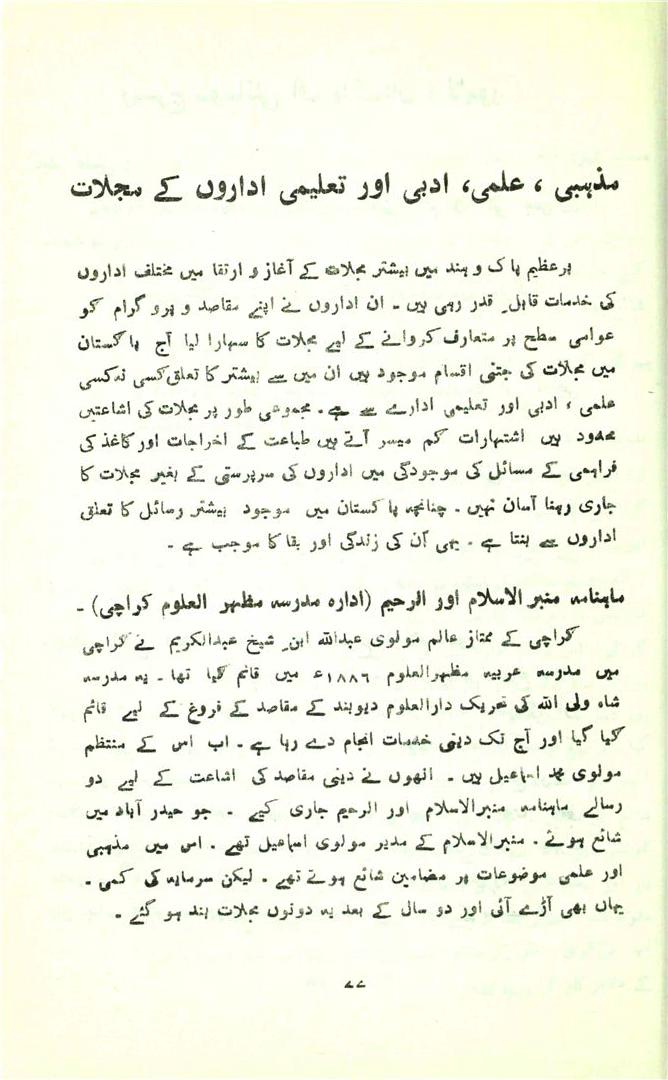 مذہبی ، علمی، ادبی اور تعلیمی اداروں کے مجلات
برعظیم پاک و ہند میں بیشتر مجلات کے آغاز و ارتقا میں مختلف اداروں
کی خدمات قابل ِ قدر رہی ہیں ۔ ان اداروں نے اپنے مقاصد و پرو گرام کو
عوامی سطح پر متعارف کروانے کے لیے مجلات کا سہارا لیا آج پاکستان
میں مجلات کی جتنی اقسام موجود ہیں ان میں سے بیشتر کا تعلق کسی نہ کسی
علمی ، ادبی اور تعلیمی ادارے سے ہے ۔ مجموعی طور پر مجلات کی اشاعتیں
محدود ہیں اشتہارات کم میسر آتے ہیں طباعت کے اخراجات اور کاغذ کی
فراہمی کے مسائل کی موجودگی میں اداروں کی سرپرستی کے بغیر مجلات کا
جاری رہنا آسان نہیں ۔ چنانچہ پاکستان میں موجود بیشتر رسائل کا تعلق
اداروں سے بنتا ہے ۔ یہی اُن کی زندگی اور بقا کا موجب ہے ۔
ماہنامہ منبر الاسلام اور الرحیم (ادارہ مدرسہ مظہر العلوم کراچی) ۔
کراچی کے ممتاز عالم مولوی عبداللہ ابن ِ شیخ عبدالکریم نے کراچی
میں مدرسہ عربیہ مظہرالعلوم ۱۸۸۶ء میں قائم کیا تھا ۔ یہ مدرسہ
شاہ ولی اللہ کی تحریک دارالعلوم دیوبند کے مقاصد کے فروغ کے لیے قائم
کیا گیا اور آج تک دینی خدمات انجام دے رہا ہے ۔ اب اس کے منتظم
مولوی محمد اسماعیل ہیں ۔ انھوں نے دینی مقاصد کی اشاعت کے لیے دو
رسالے ماہنامہ منبرالاسلام اور الرحیم جاری کیے ۔ جو حیدر آباد میں
شائع ہوتے ۔ منبرالاسلام کے مدیر مولوی اسماعیل تھے ۔ اس میں مذہبی
اور علمی موضوعات پر مضامین شائع ہوتے تھے ۔ لیکن سرمایہ کی کمی ۔
یہاں بھی آڑے آئی اور دو سال کے بعد یہ دونوں مجلات بند ہو گئے ۔
۷۷